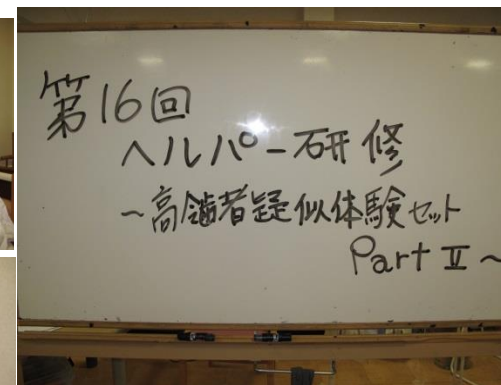 第16回
ヘルパー研修
~高齢者疑似体験セット
Part II~